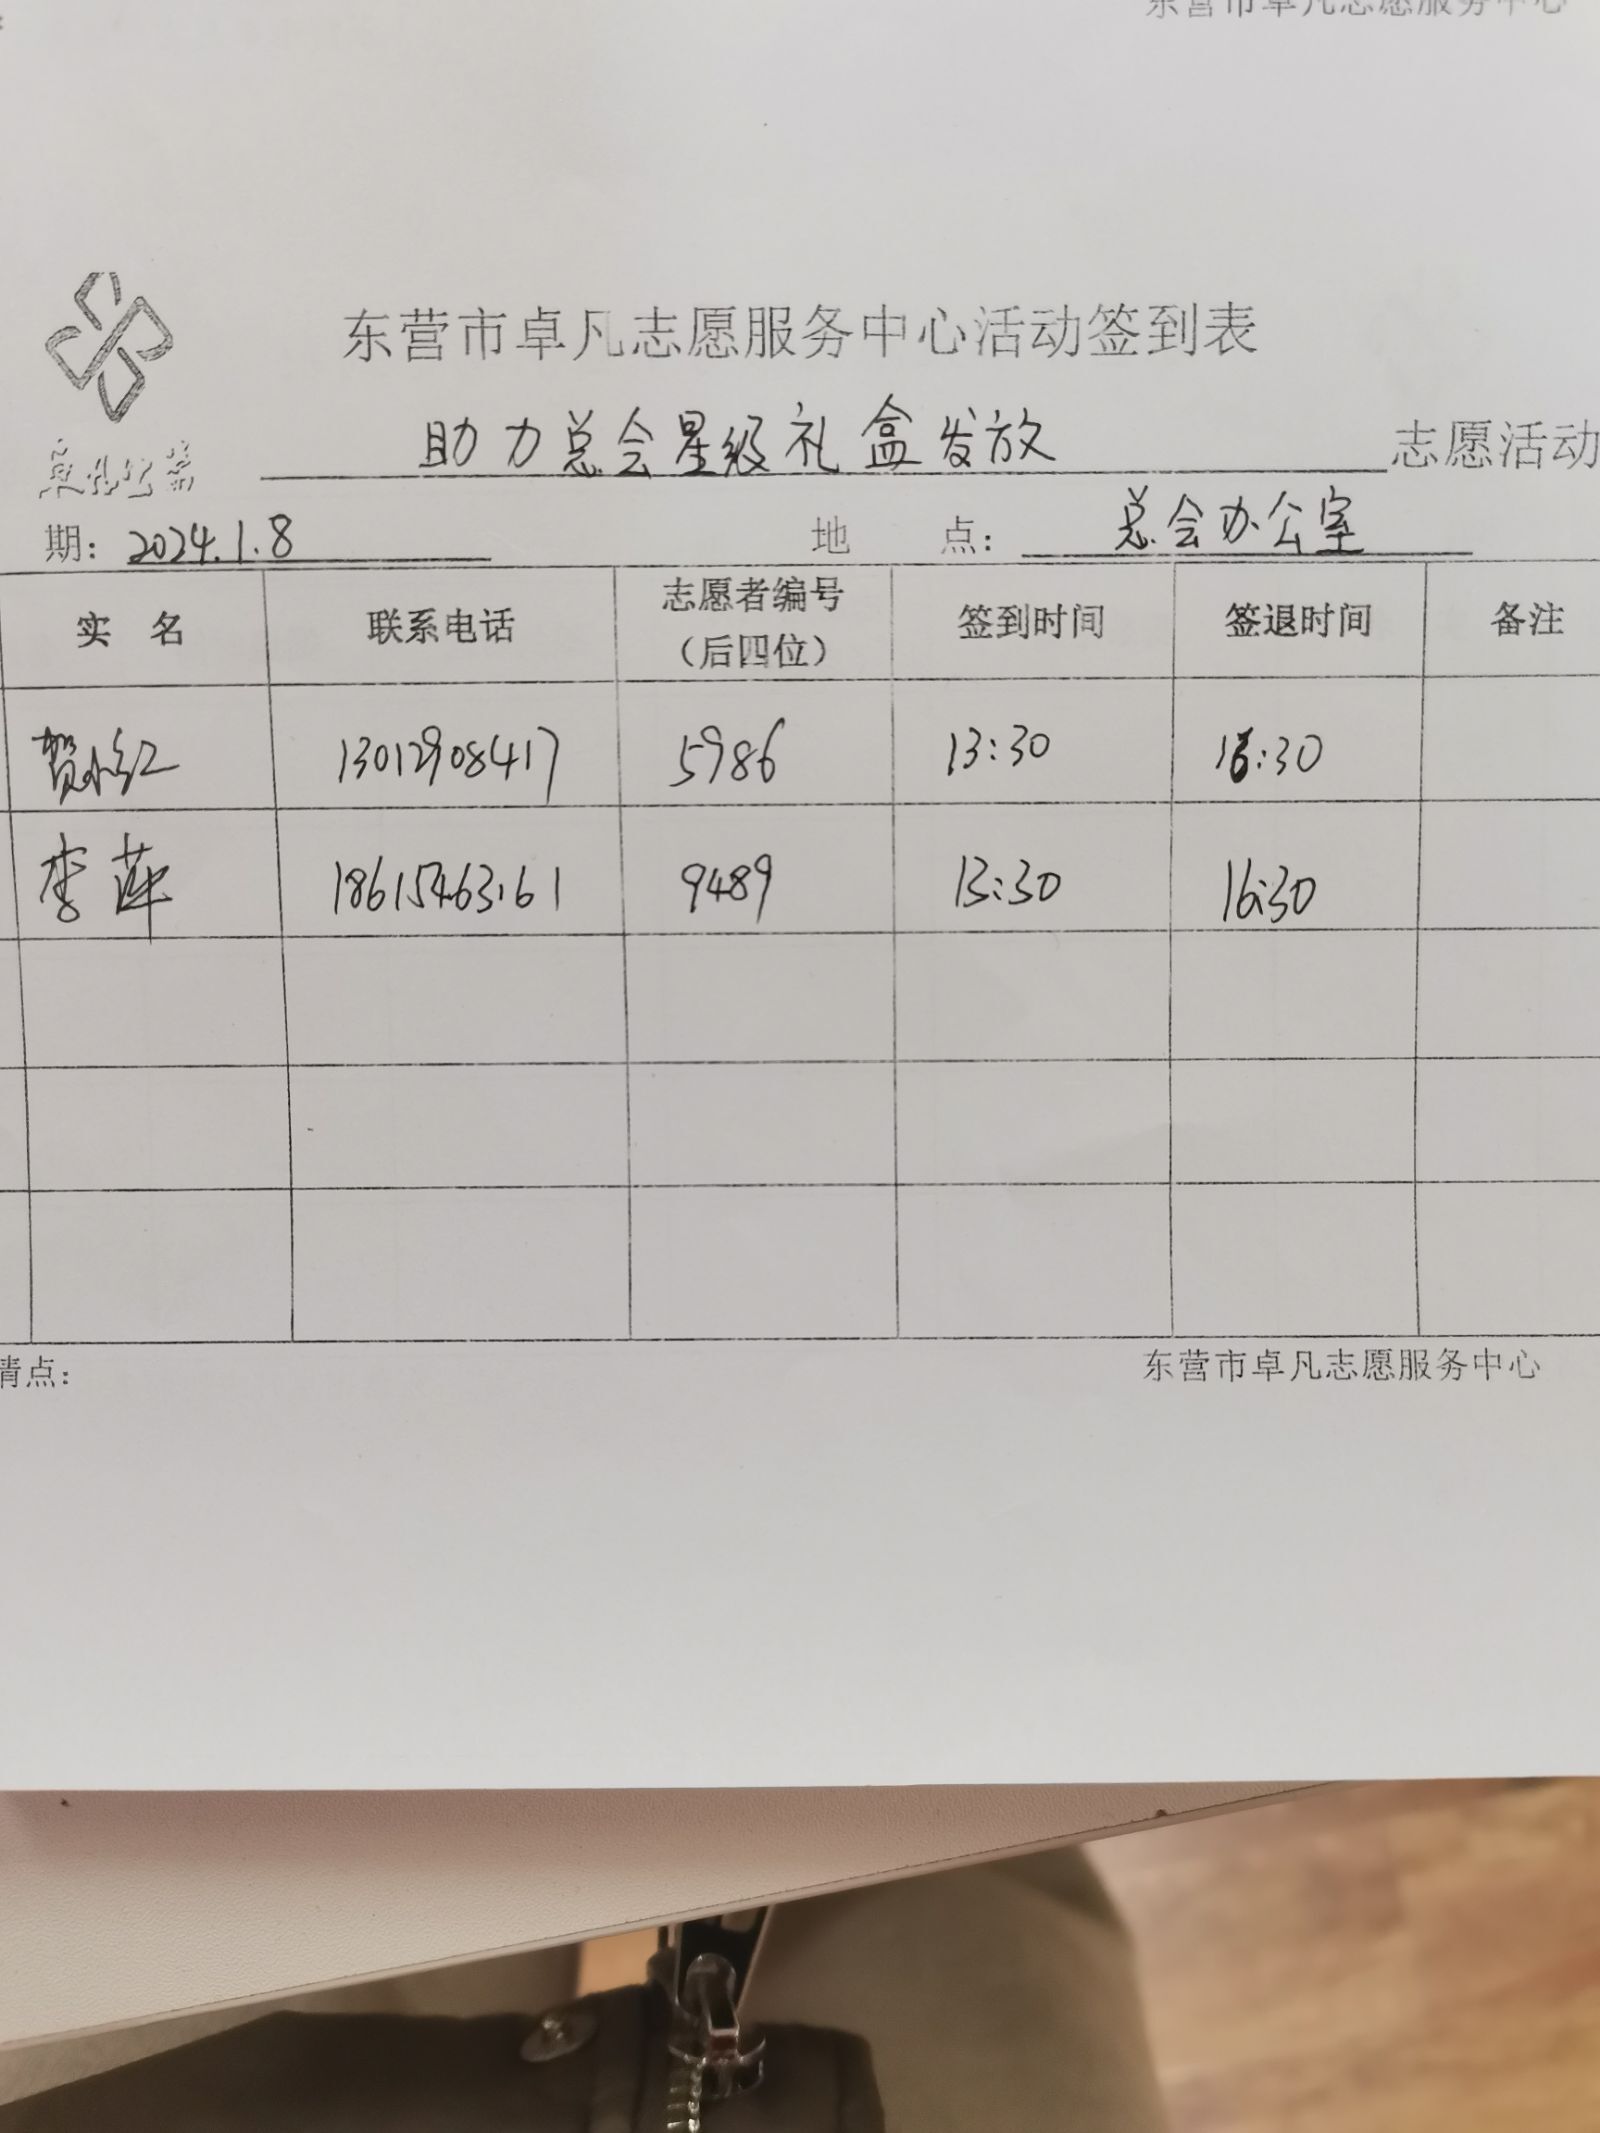 东营市卓凡志愿服务中心
东营市卓凡志愿服务中心活动签到表
助力总会星级礼盒发放 志愿活动
期: 2024.1.8 地 点: 总会办公室
实 名 联系电话 志愿者编号 (后四位) 签到时间 签退时间 备注
贺永红 13012908417 5986 13:30 16:30
李萍 18615463161 9489 13:30 16:30
清点: 东营市卓凡志愿服务中心